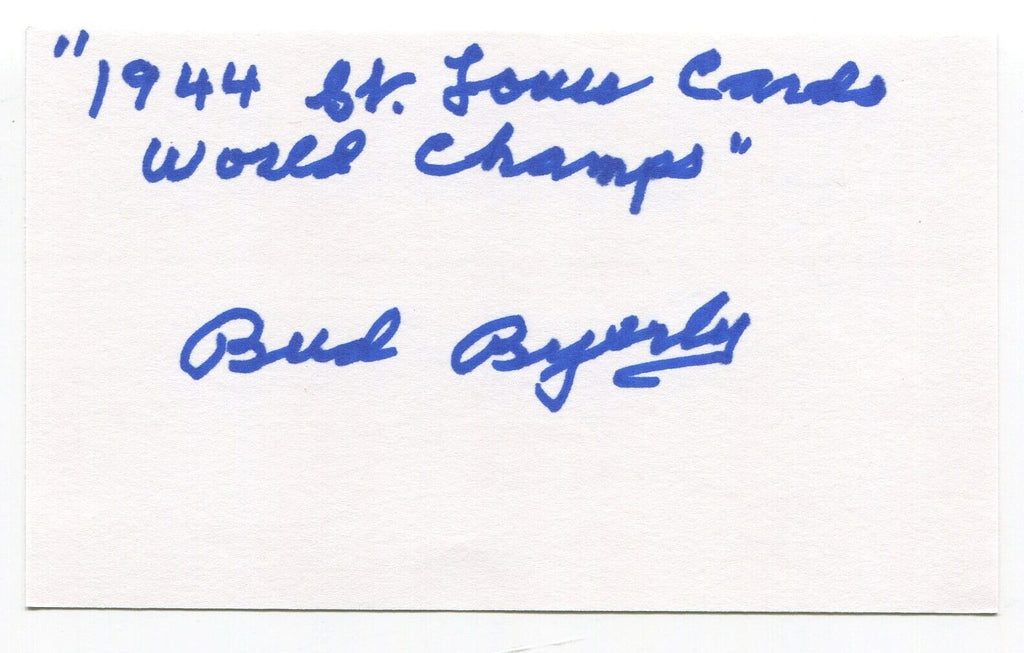 "1944 St. Louis Cards
World Champs"
Bud Byerly